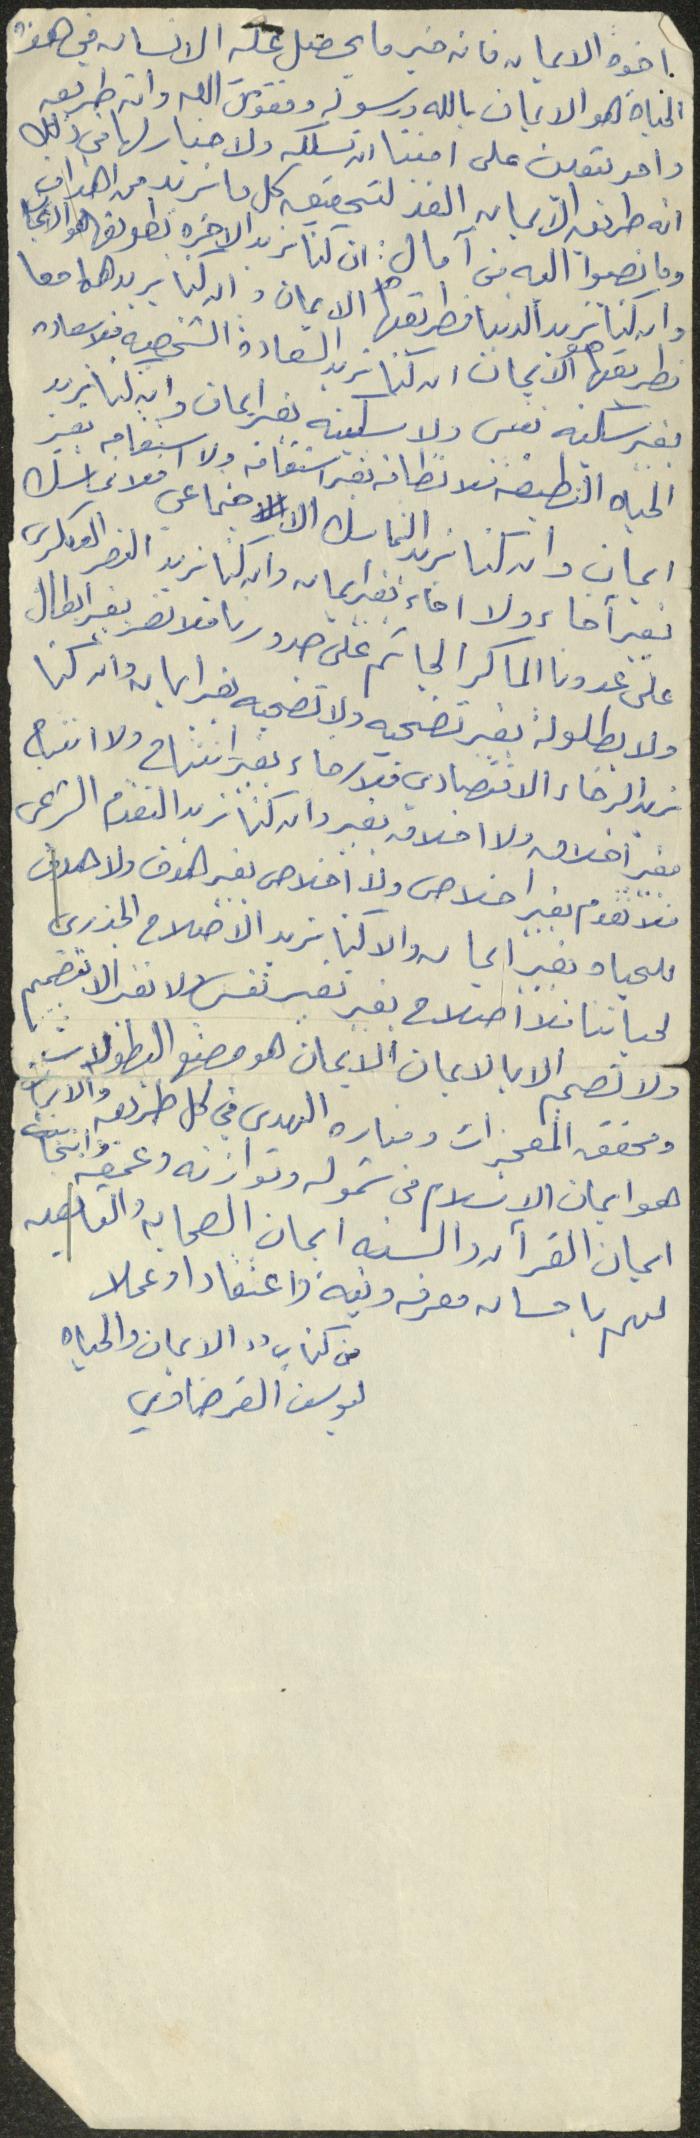 اخوة الايمان فانه خير ما يحصل عليه الانسان في هذه
الحياة هو الايمان بالله ورسوله وفقوق الله وانه طريق
واحد يتعين على امتنا ان تسلكه ولا خيار لها في ذلك
انه طريق الايمان الفذ لتحقيق كل ما نريد من اهداف
وما نصبوا اليه من آمال : ان كنا نريد الاخرة فطريقها هو الايمان
وان كنا نريد الدنيا فطريقها هو الايمان وان كنا نريدهما معا
فطريقها هو الايمان ان كنا نريد السعادة الشخصيه فلا سعاده
بغير سكينه نفس ولا سكينه بغير ايمان وان كنا نريد
الحياه النظيفه فلا نظافه بغير استقامه ولا استقامه بغير
ايمان وان كنا نريد التماسك الاجتماعي فلا تماسك
بغير آخاء ولا اخاء بغير ايمان وان كنا نريد النصر العسكري
على عدونا الماكر الجاثم على صدورنا فلا نصر بغير ابطال
ولا بطولة بغير تضحيه ولا تضحيه بغير ايمان وان كنا
نريد الرخاء الاقتصادي فلا رخاء بغير انتاج ولا انتاج
بغير اخلاق ولا اخلاق بغير وان كنا نريد التقدم الشرعي
فلا تقدم بغير اخلاص ولا اخلاص بغير هدف ولا هدف
للحياه بغير ايمان والا كنا نريد الاصلاح الجذري
لحياتنا فلا اصلاح بغير تغيير نفس ولا تغير الا بتصميم
ولا تصميم الا بالايمان الايمان هو مصنع البطولات
ومحقق المعجزات ومناره الهدى في كل طريق والايمان
هو ايمان الاسلام في شموله وتوازنه وعمقه وايجابيته
ايمان القرآن والسنه ايمان الصحابه والتابعين
لهم باحسان معرفه ونية واعتقادا وعملا
من كتاب ,, الايمان والحياه
ليوسف القرضاوي